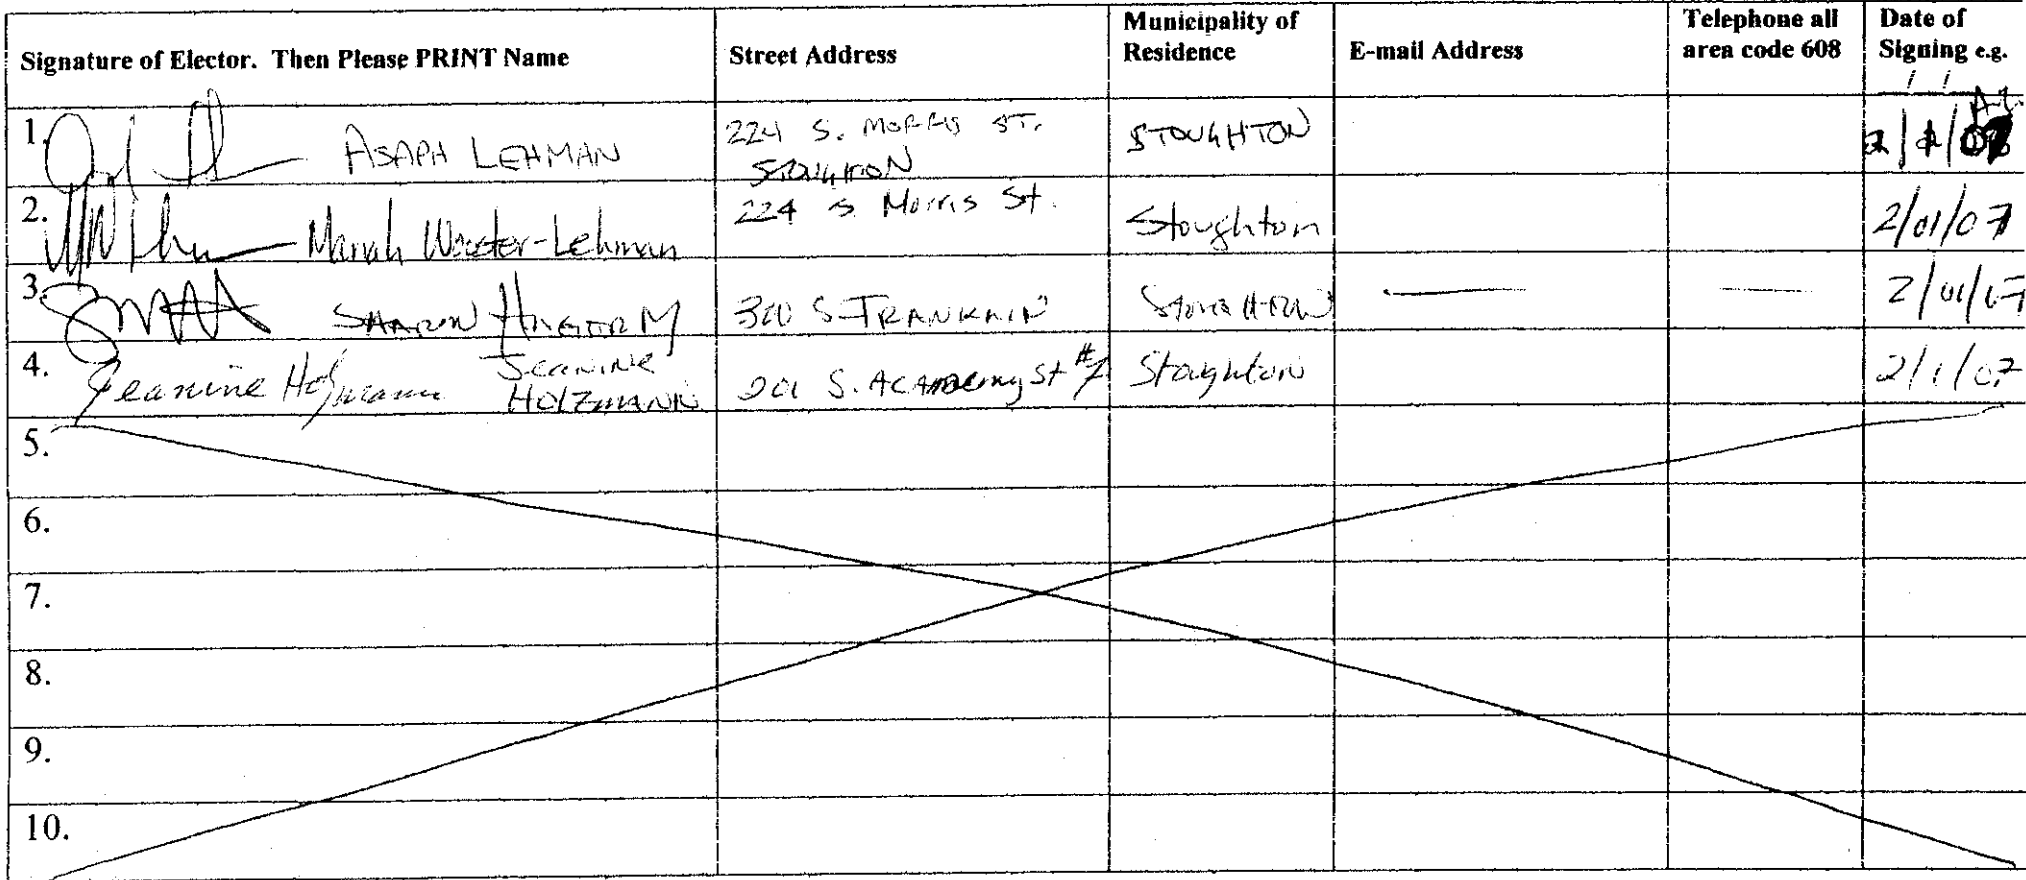 Signature of Elector. Then Please PRINT Name
Street Address
Municipality of
Residence
E-mail Address
Telephone all
area code 608
Date of
Signing e.g.
/ /
1. ASAPH LEHMAN
224 S. MORRIS ST.
STOUGHTON
STOUGHTON
A.L.
2/1/07
2. Mariah Wooster-Lehman
224 S. Morris St.
Stoughton
2/01/07
3. SHARON
320 S. FRANKLIN
STOUGHTON
— —
2/01/07
4. Jeanine Holzmann
Jeanine
HOLZMANN
201 S. Academy St #7
Stoughton
2/1/07
5.
6.
7.
8.
9.
10.